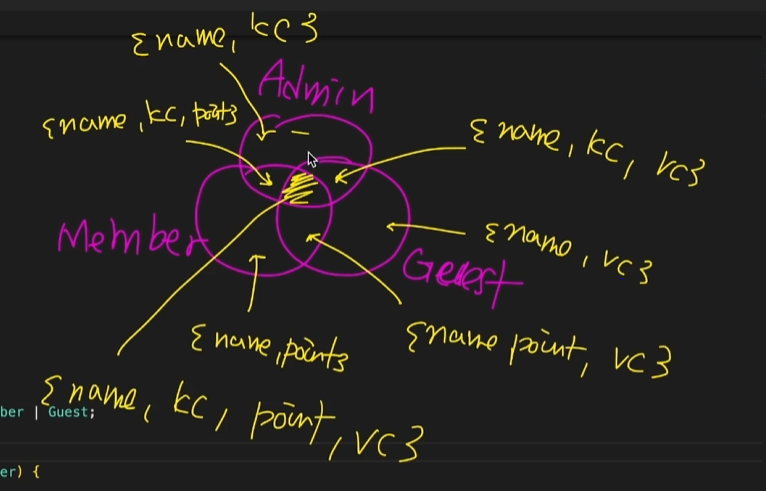 {name, kc}
Admin
{name, kc, point}
{name, kc, vc}
Member
{name, vc}
Guest
{name, point}
{name point, vc}
{name, kc, point, vc}
ber | Guest;
er) {